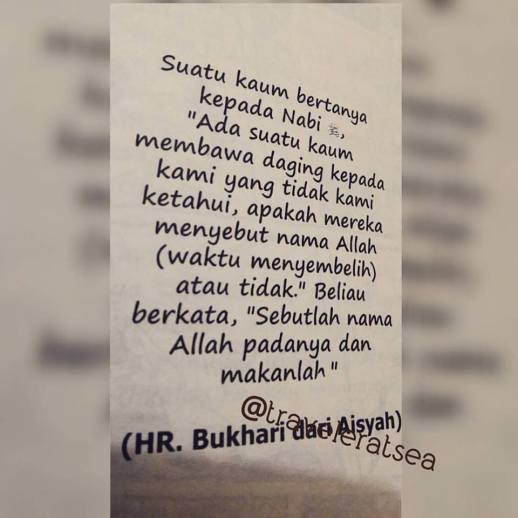 Suatu kaum bertanya
kepada Nabi ﷺ,
"Ada suatu kaum
membawa daging kepada
kami yang tidak kami
ketahui, apakah mereka
menyebut nama Allah
(waktu menyembelih)
atau tidak." Beliau
berkata, "Sebutlah nama
Allah padanya dan
makanlah"
@traveleratsea
(HR. Bukhari dari Aisyah)